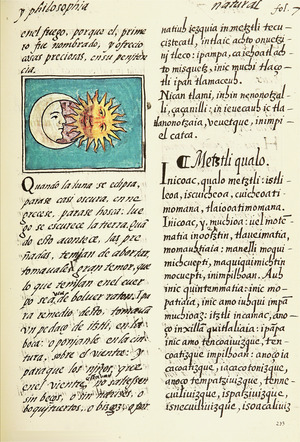 y philosophia natural fol. 7
enel fuego, porque el, prime
ro fue nombrado, y ofrecio
cosas preciosas, en su peniten
cia.
Quando la luna se eclipsa,
parase casi escura, enne
grecese, parase hosca: lue
go se escurece la tierra. Quã
do esto acontece, las pre
ñadas, temjan de abortar,
tomavales gran temor, que
lo que tenjan en el cuer
po, se avia de bolver raton. Y pa
ra remedio desto, tomavan
vn pedaço de itztli, en la
boca: o ponjanle en la cin
tura, sobre el vientre: y
para que los njños, que en
el vientre, no saliessen
sin beços, o sin narizes, o
boquituertos, o bizcos, o por
natiuh iezquia in metztli tecu
ciztecatl, intlaic achto onuetzi
nj tleco: ipampa, ca iehoatl ach
to misquetz, inic muchi tlaço
tli ipan tlamaceuh.
Nican tlami, inhin nenonotzal
li, çaçanilli: in ieuecauh ic tla
nonotzaia, veuetque, in impi
el catca.
¶ Metztli qualo.
Inicoac, qualo metztli: iztli
leoa, iscuicheoa, cuicheoati
momana, tlaiooatimomana.
Inicoac, y, muchioa: vel mote
matia in ootztin, tlaueimatia,
momauhtiaia: manelli moqui
michcuepti, maquiquimichtin
mocuepti, inimpilhoan. Auh
inic quintemmatia: inic mo
patia, inic amo iuhqui impã
muchioaz: itztli incamac, ano
ço inxillã quitlaliaia: ipãpa
inic amo tencoaiuizque, ten
coatizque impilhoan: anoço ia
cacoatizque, iacacotonizque,
anoço tempatziuizque, tenne
cuiliuizque, ispatziuizque,
isnecuiliuizque, isoacaliuiz
233